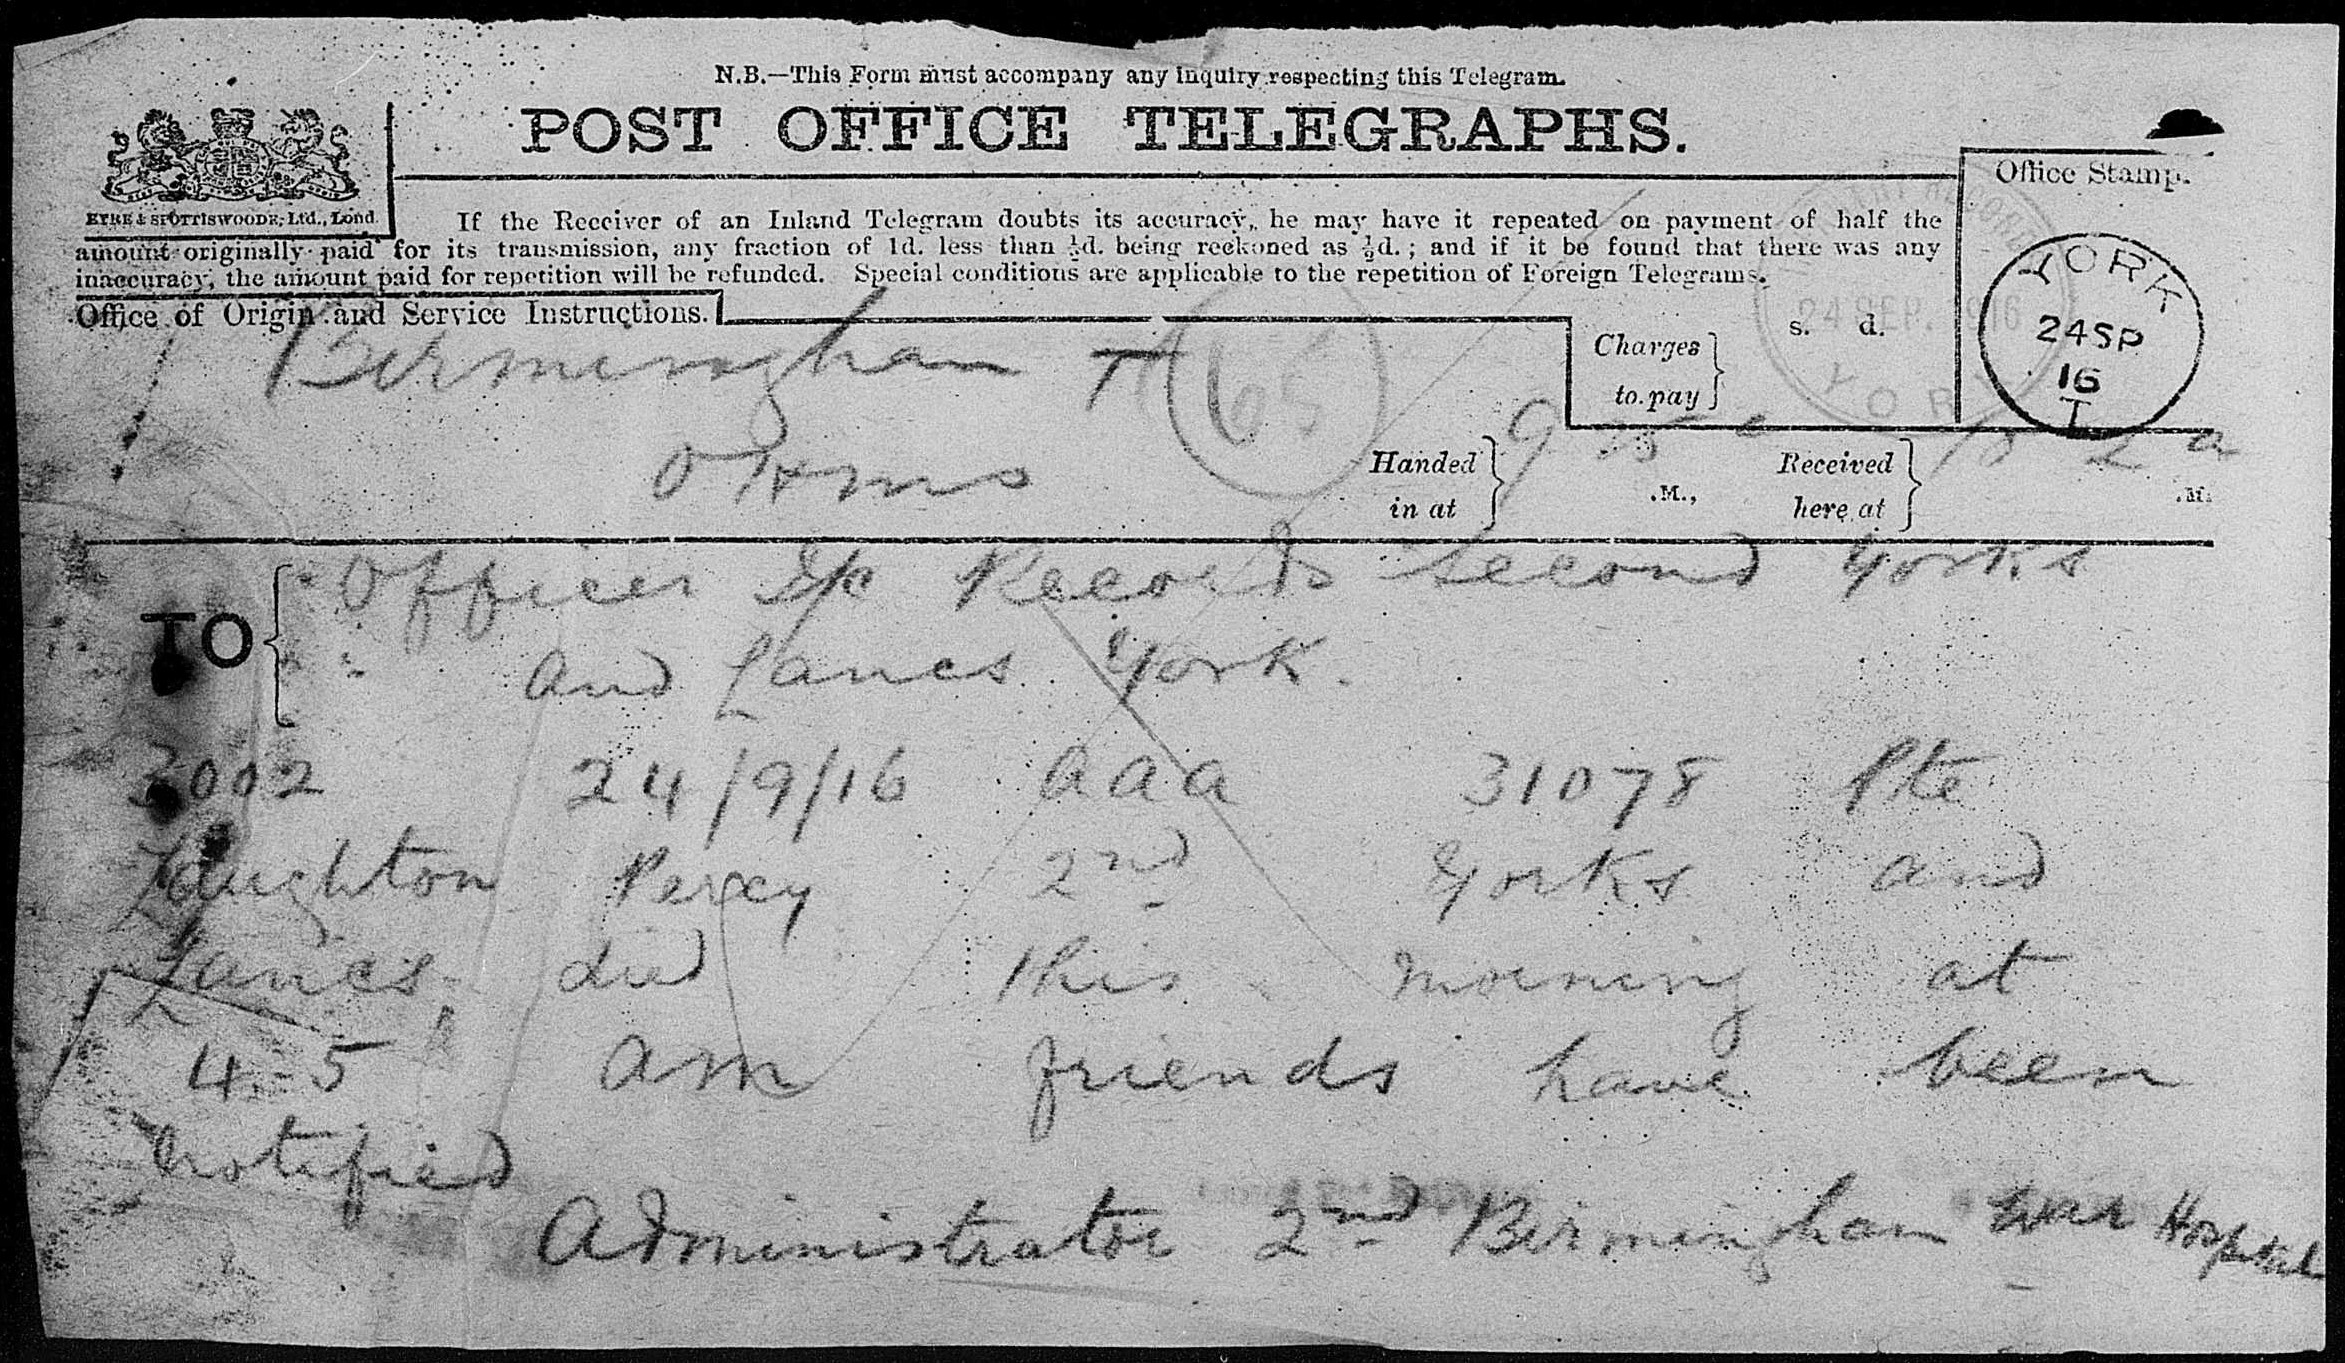 N.B.—This Form must accompany any inquiry respecting this Telegram.
POST OFFICE TELEGRAPHS.
EYRE & SPOTTISWOODE, Ltd., Lond.
If the Receiver of an Inland Telegram doubts its accuracy, he may have it repeated on payment of half the
amount originally paid for its transmission, any fraction of 1d. less than ½d. being reckoned as ½d.; and if it be found that there was any
inaccuracy, the amount paid for repetition will be refunded. Special conditions are applicable to the repetition of Foreign Telegrams.
Office Stamp.
YORK
24 SP
16
T
24 SEP. 1916
YORK
Office of Origin and Service Instructions.
Birmingham
OHMS
65
Charges to pay
s. d.
Handed in at
9
.M.,
Received here at
10 2 a
.M.
TO
Officer I/c Records Second Yorks
and Lancs York.
3002 24/9/16 aaa 31078 Pte
Percy 2nd Yorks and
Lancs died this morning at
4-5 am friends have been
notified
Administrator 2nd Birmingham War Hospital